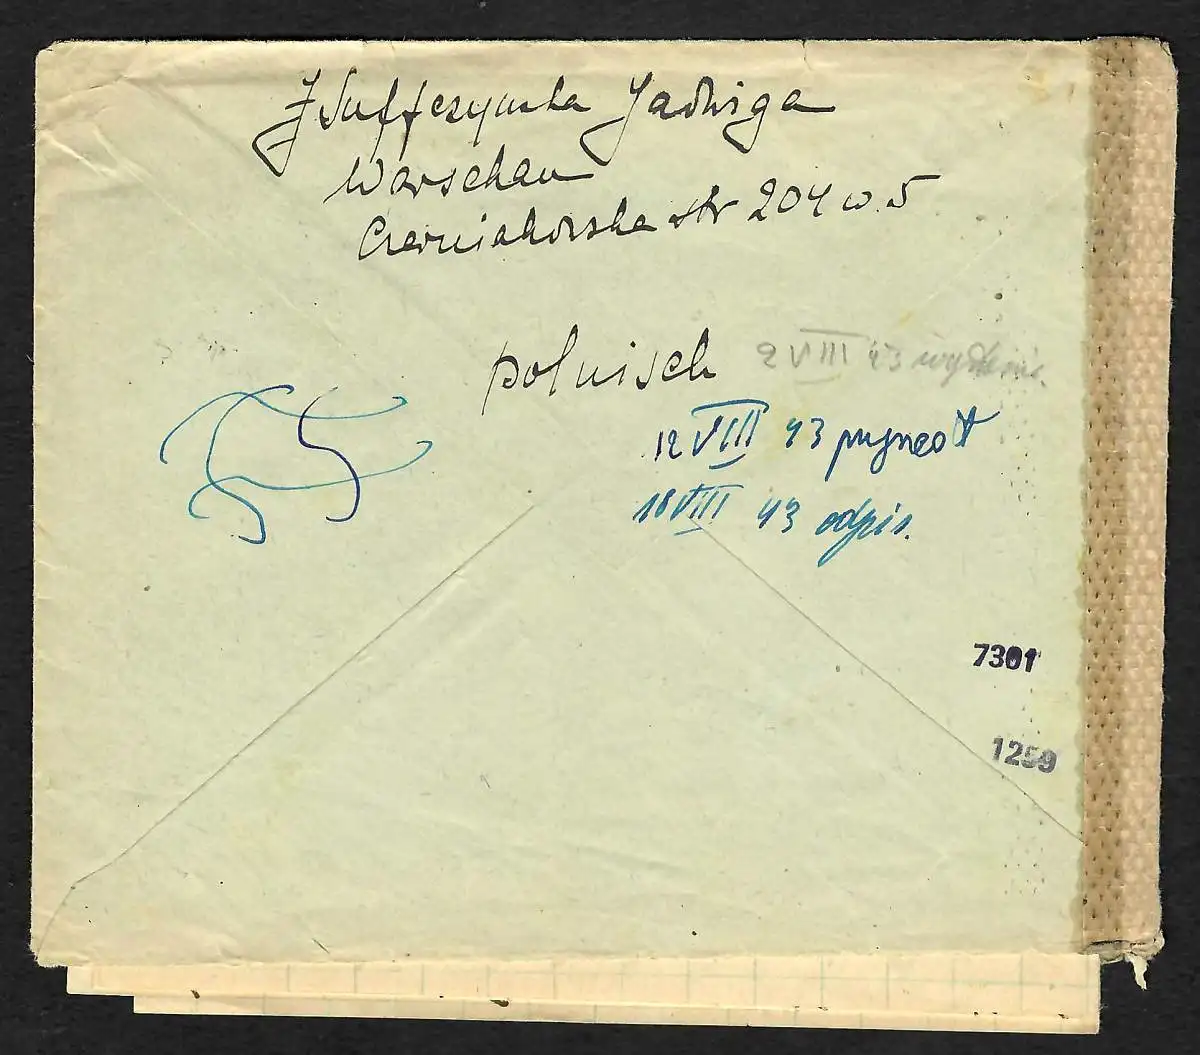 Jadwiga
Warschau
Czerniakowska str 204 w. 5
polnisch 2 VIII 43
12 VIII 43
18 VIII 43 odpis.
7301
1259